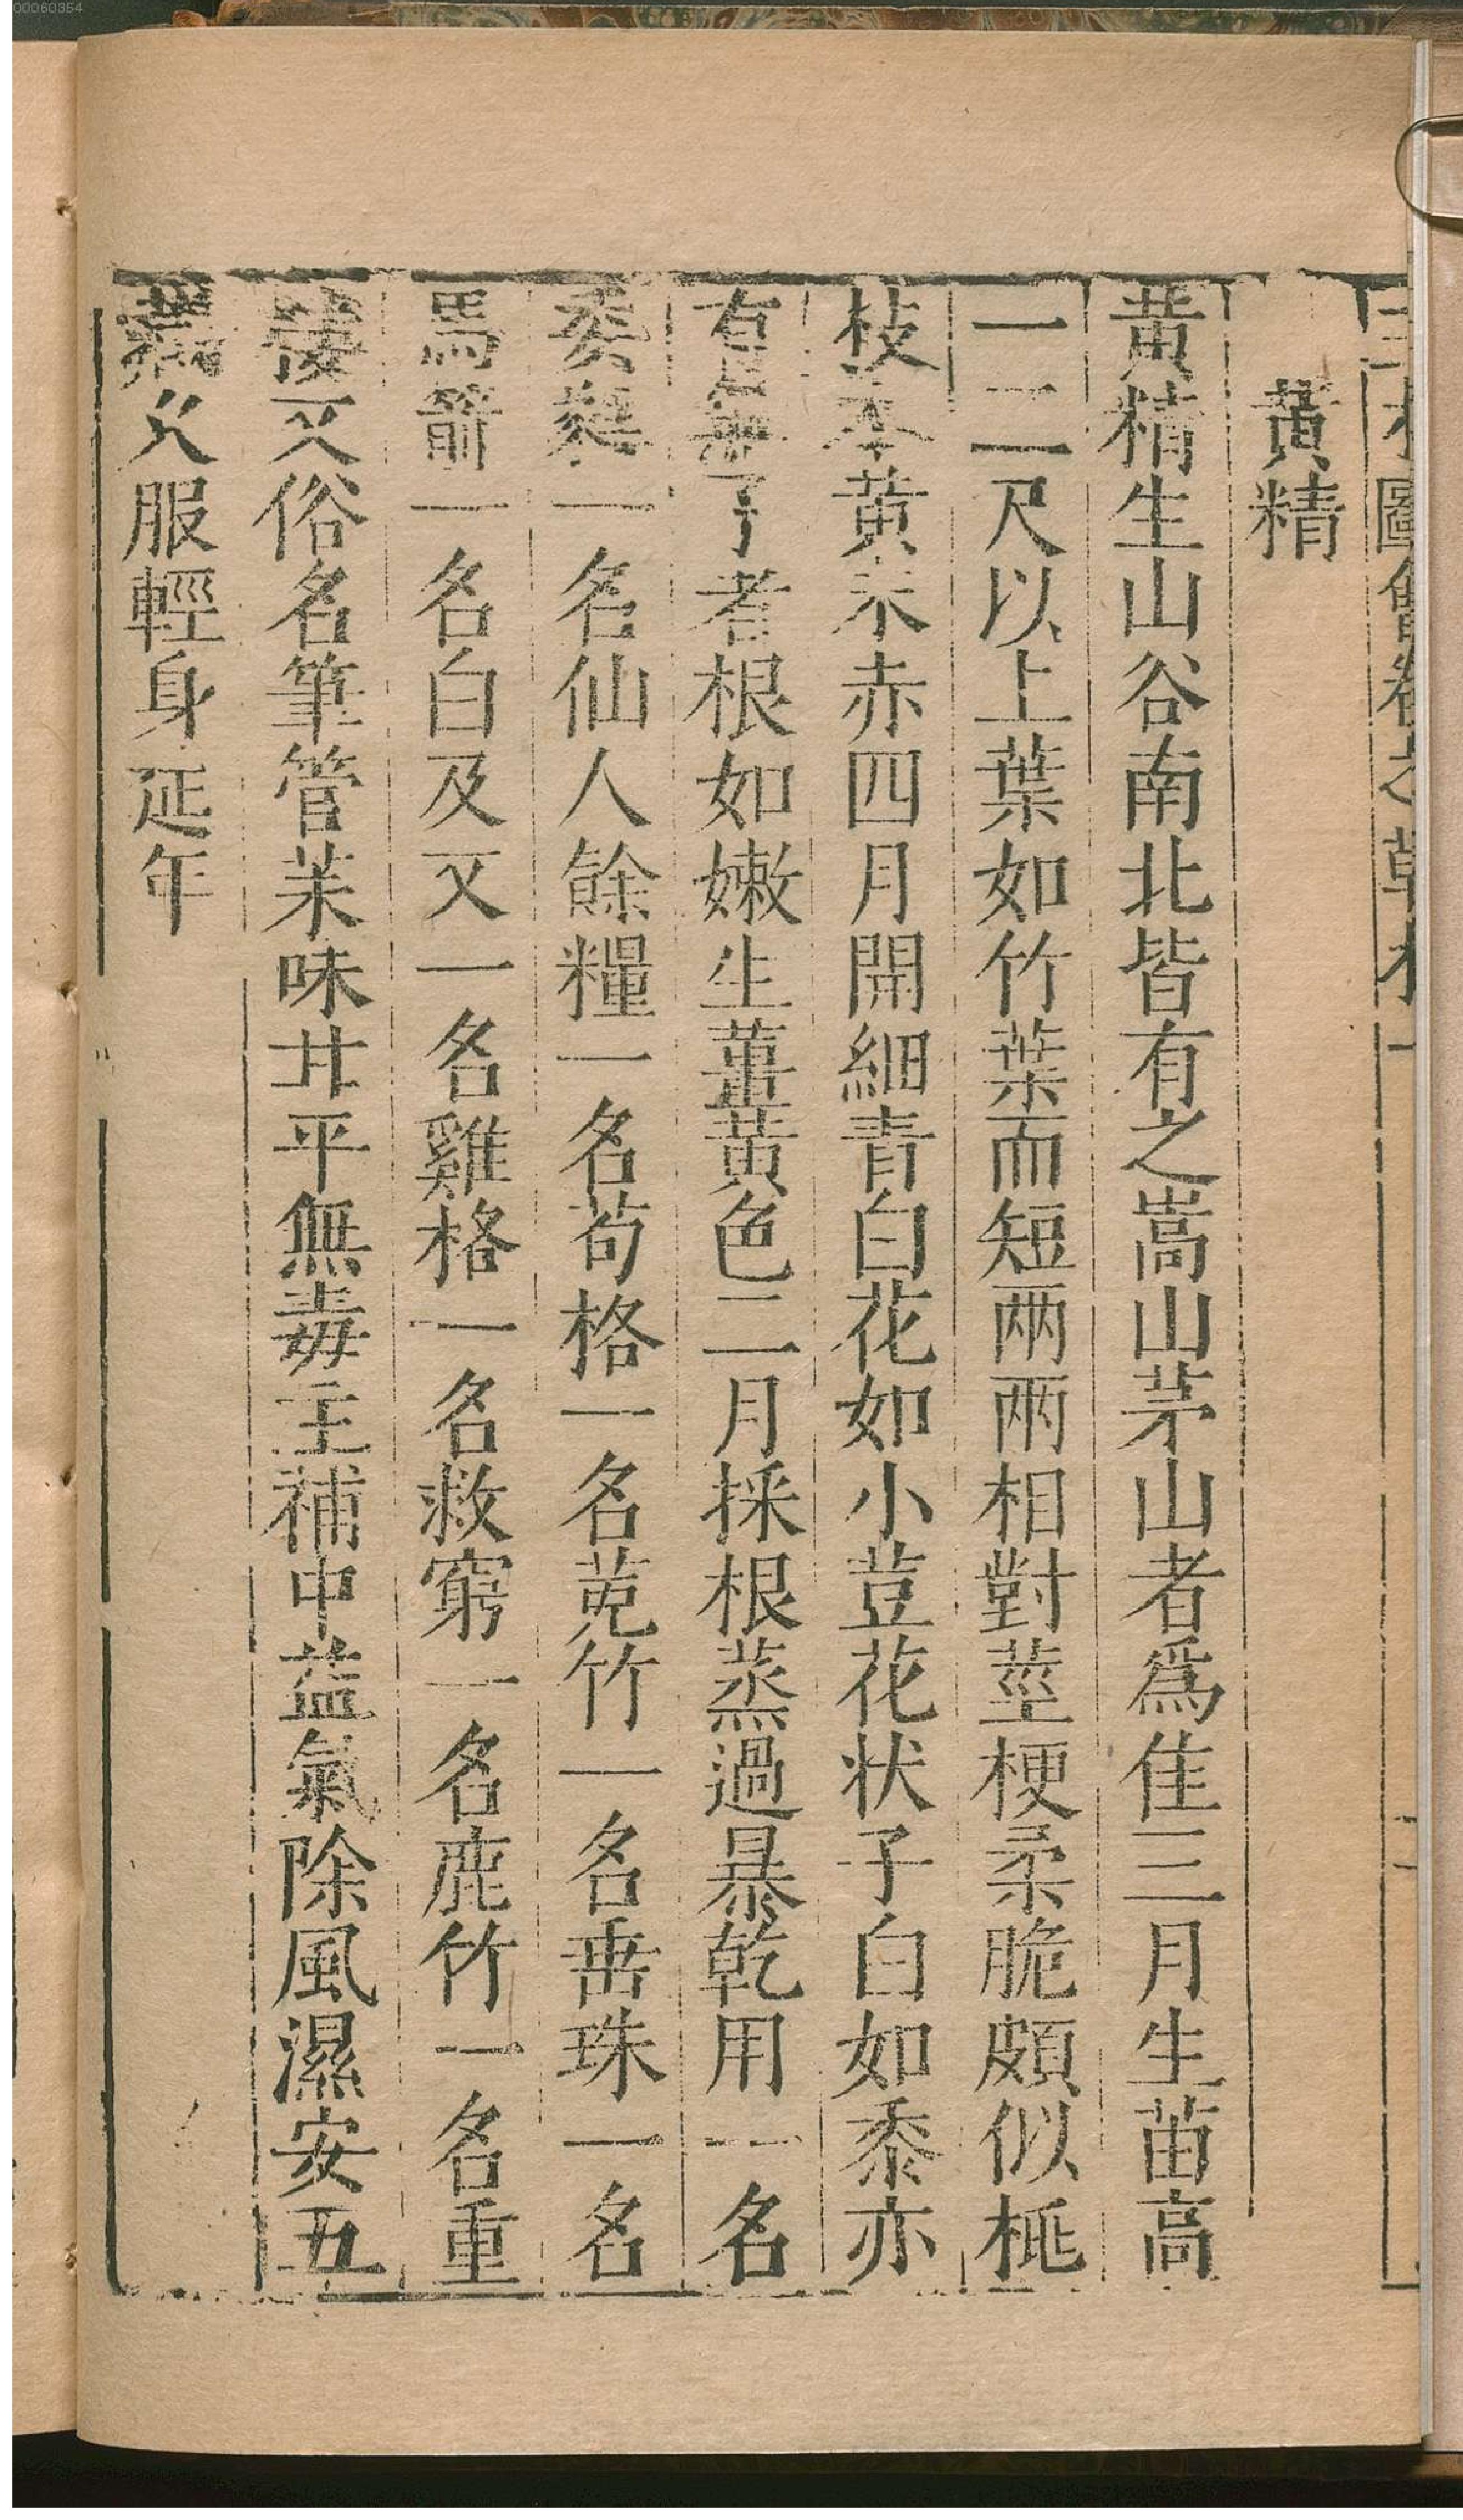 00060354
圖會卷之草木
黃精
黃精生山谷南北皆有之嵩山茅山者爲佳三月生苗高
一二尺以上葉如竹葉而短兩兩相對莖梗柔脆頗似桃
枝本黃末赤四月開細青白花如小荳花状子白如黍亦
有無子者根如嫩生薑黃色二月採根蒸過暴乾用一名
委蕤一名仙人餘糧一名苟格一名莵竹一名垂珠一名
馬箭一名白及又一名雞格一名救窮一名鹿竹一名重
又俗名筆管菜味甘平無毒主補中益氣除風濕安五
久服輕身延年